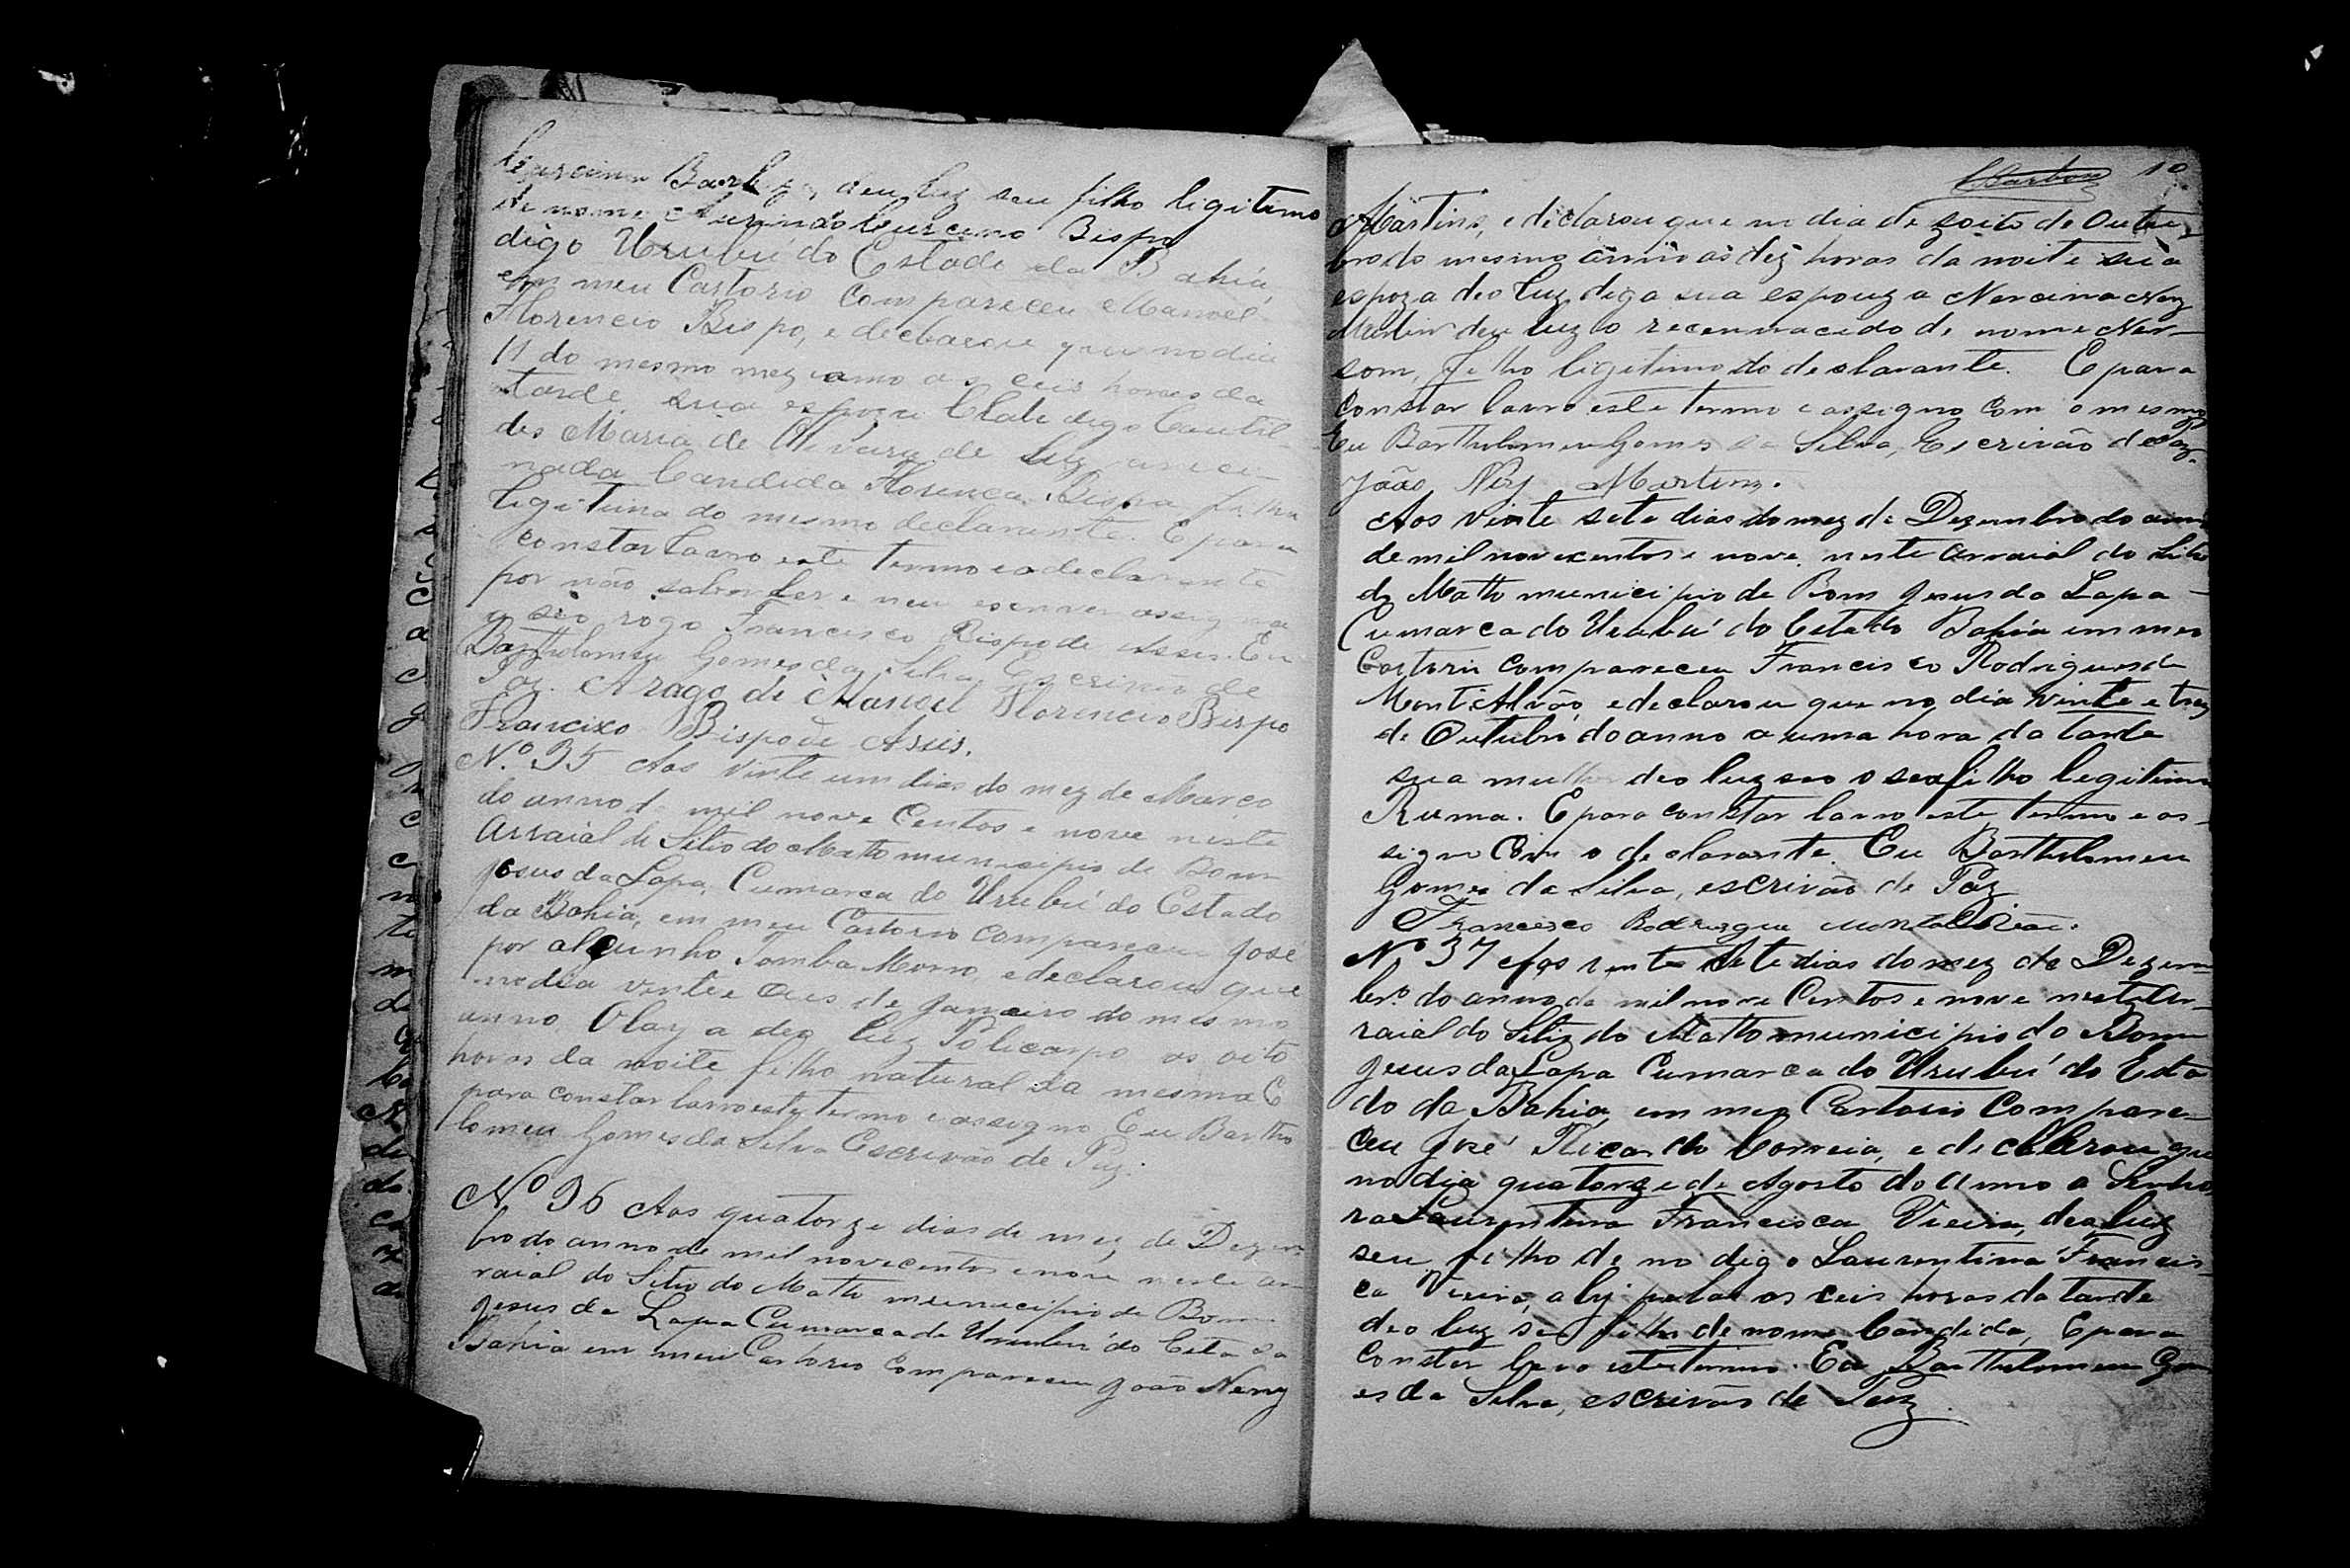 Barboza, deu luz seu filho ligitimo
de nome Bispo
digo Urubú do Estado da Bahia,
em meu Cartorio compareceu Manoel
Florencio Bispo, e declarou que no dia
11 do mesmo mez anno as ceis horas da
tarde, sua espoza digo Cantil-
des Maria de de luz
nada Candida Florença Bispa filha
ligitima do mesmo declarante. E para
constar lavro este termo e o declarante
por não saber ler e nem escrever assigna
a seo rogo Francisco Bispo de Assis. Eu
Bartholomeu Gomes da Silva Escrivão de
Paz. A rogo de Manoel Florencio Bispo
Francixo Bispo de Asiis.
Nº 35 Aos vinte um dias do mez de Março
do anno de mil nove Centos e nove neste
Arraial do Sitio do Matto municipio de Bom
Jesus da Lapa, Cumarca do Urubú do Estado
da Bahia, em meu Cartorio compareceu José
por alcunho Tomba Morro, e declarou que
no dia vinte e de Janeiro do mesmo
anno Olaya deo luz Policarpo as oito
horas da noite filho natural da mesma E
para constar lavro este termo e assigno Eu Bartho
lomeu Gomes da Silva Escrivão de Paz.
Nº 36 Aos quatorze dias do mez de Dezem
bro do anno de mil novecentos e nove neste ar
raial do Sitio do Matto municipio de Bom
Jesus da Lapa Cumarca do Urubú do Esta da
Bahia em meu Cartorio compareceu João Nery
Barboza 10
Martins, e declarou que no dia dezoito de Outu-
bro do mesmo anno as dez horas da noite sua
espoza deo luz, digo sua espouza Nercina Nery
Martins deu luz o recemnacido de nome Ner-
som, filho ligitimo do declarante. E para
constar lavro este termo e assigno com o mesmo
Eu Bartholomeu Gomes da Silva, Escrivão de Paz.
João Nery Martins.
Aos vinte sete dias do mez de Dezembro do anno
de mil novecentos e nove, neste arraial do Sitio
do Matto municipio de Bom Jesus da Lapa
Cumarca do Urubú do Estado Bahia em meu
Cartorio compareceu Francisco Rodrigues de
Mont Alvão, e declarou que no dia vinte e trez
de Outubro do anno a uma hora da tarde
sua mulher deo luz seo o seo filho legitimo
Ruma. E para constar lavro este termo e as-
signo com o declarante. Eu Bartholomeu
Gomes da Silva, escrivão de Paz
Francisco Rodrigue Montalvão.
Nº 37 Aos vinte sete dias do mez de Dezem
brº do anno de mil nove Centos e nove neste Ar-
raial do Sitio do Matto municipio do Bom
Jesus da Lapa Cumarca do Urubú do Esta
do da Bahia, em meu Cartorio compare-
ceu José Ricardo Correia, e declarou que
no dia quatorze de Agosto do anno a Senho
ra Laurentina Francisca Vieira, deo luz
seu filho de no digo Laurentina Francis-
ca Vieira, as ceis horas da tarde
deo luz seo filha de nome Candida, E para
Constar lavro este termo. Eu Bartholomeu Gom
es da Silva, escrivão de Paz.